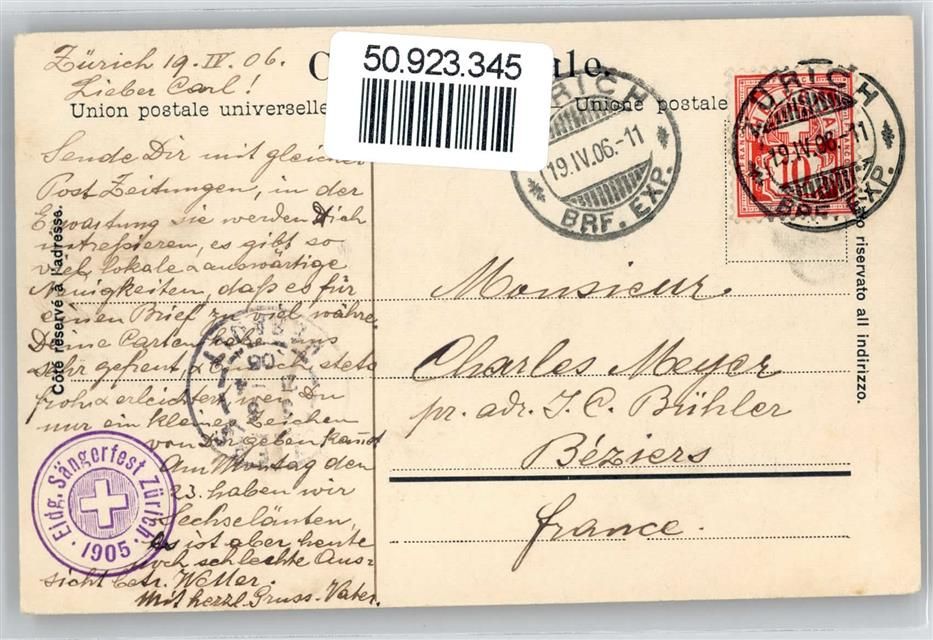 50.923.345
ale.
Union postale universelle
Unione postale
Côté réservé à l'adresse.
riservato all indirizzo.
Zürich 19. IV. 06.
Lieber Carl!
Sende Dir mit gleicher
Post Zeitungen, in der
Erwartung sie werden Dich
intressieren, es gibt so
viel lokale & auswärtige
Neuigkeiten, daß es für
einen Brief zu viel wäre.
Deine Carten haben uns
sehr gefreut, & auch stets
froh & erleichtert wen Du
nur ein kleines Zeichen
von Dir geben kanst
Am Montag den
23. haben wir
Sechseläuten,
es ist aber heute
noch schlechte Aus-
sicht betr. Wetter.
Mit herzl. Gruss. Vater.
Eidg. Sängerfest Zürich
1905
ZÜRICH
19.IV.06.-11
BRF. EXP.
ZÜRICH
19.IV.06.-11
BRF. EXP.
10
Monsieur
Charles Meyer
pr. adr. J. C. Bühler
Béziers
france.